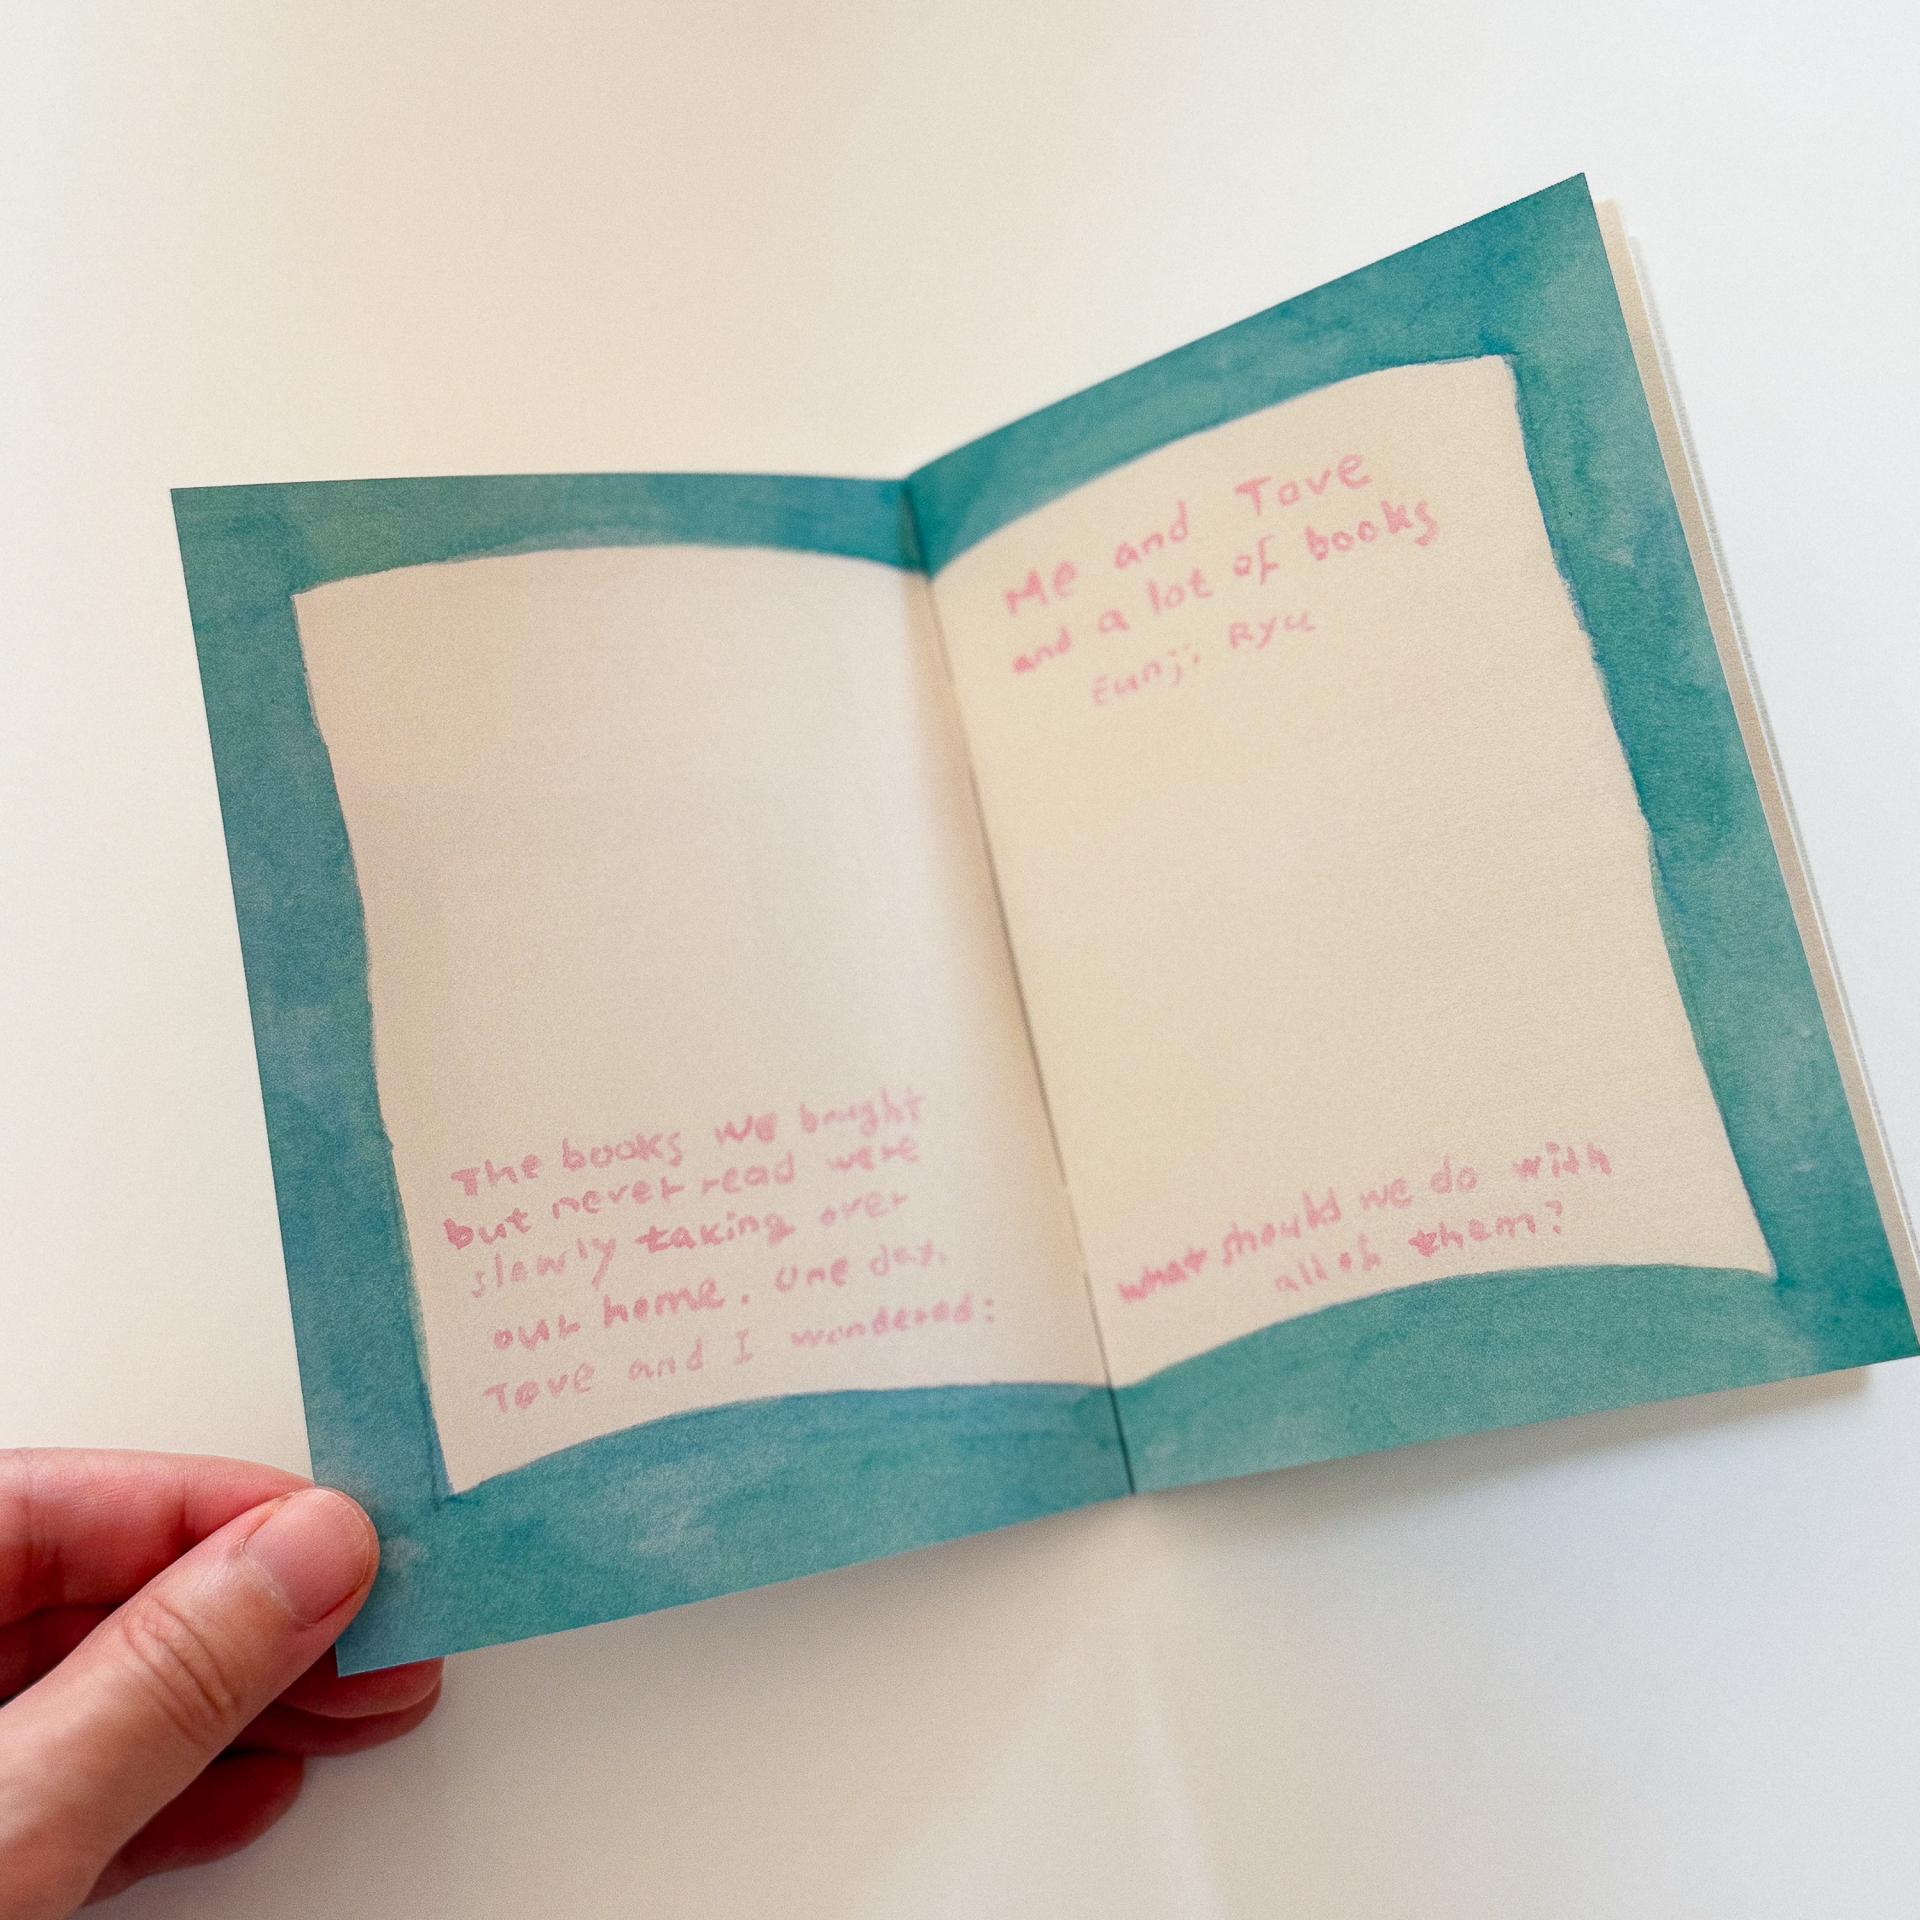 The books we bought
but never read were
slowly taking over
our home. One day,
Tove and I wondered:
Me and Tove
and a lot of books
Eunji Ryu
What should we do with
all of them?